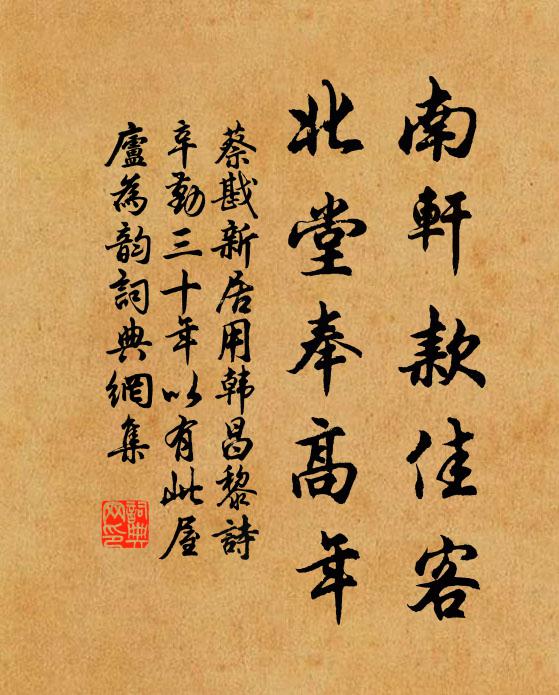 南軒款佳客
北堂奉高年
蔡戡新居用韓昌黎詩
辛勤三十年以有此屋
廬為韵詞典網集
詞典
网印